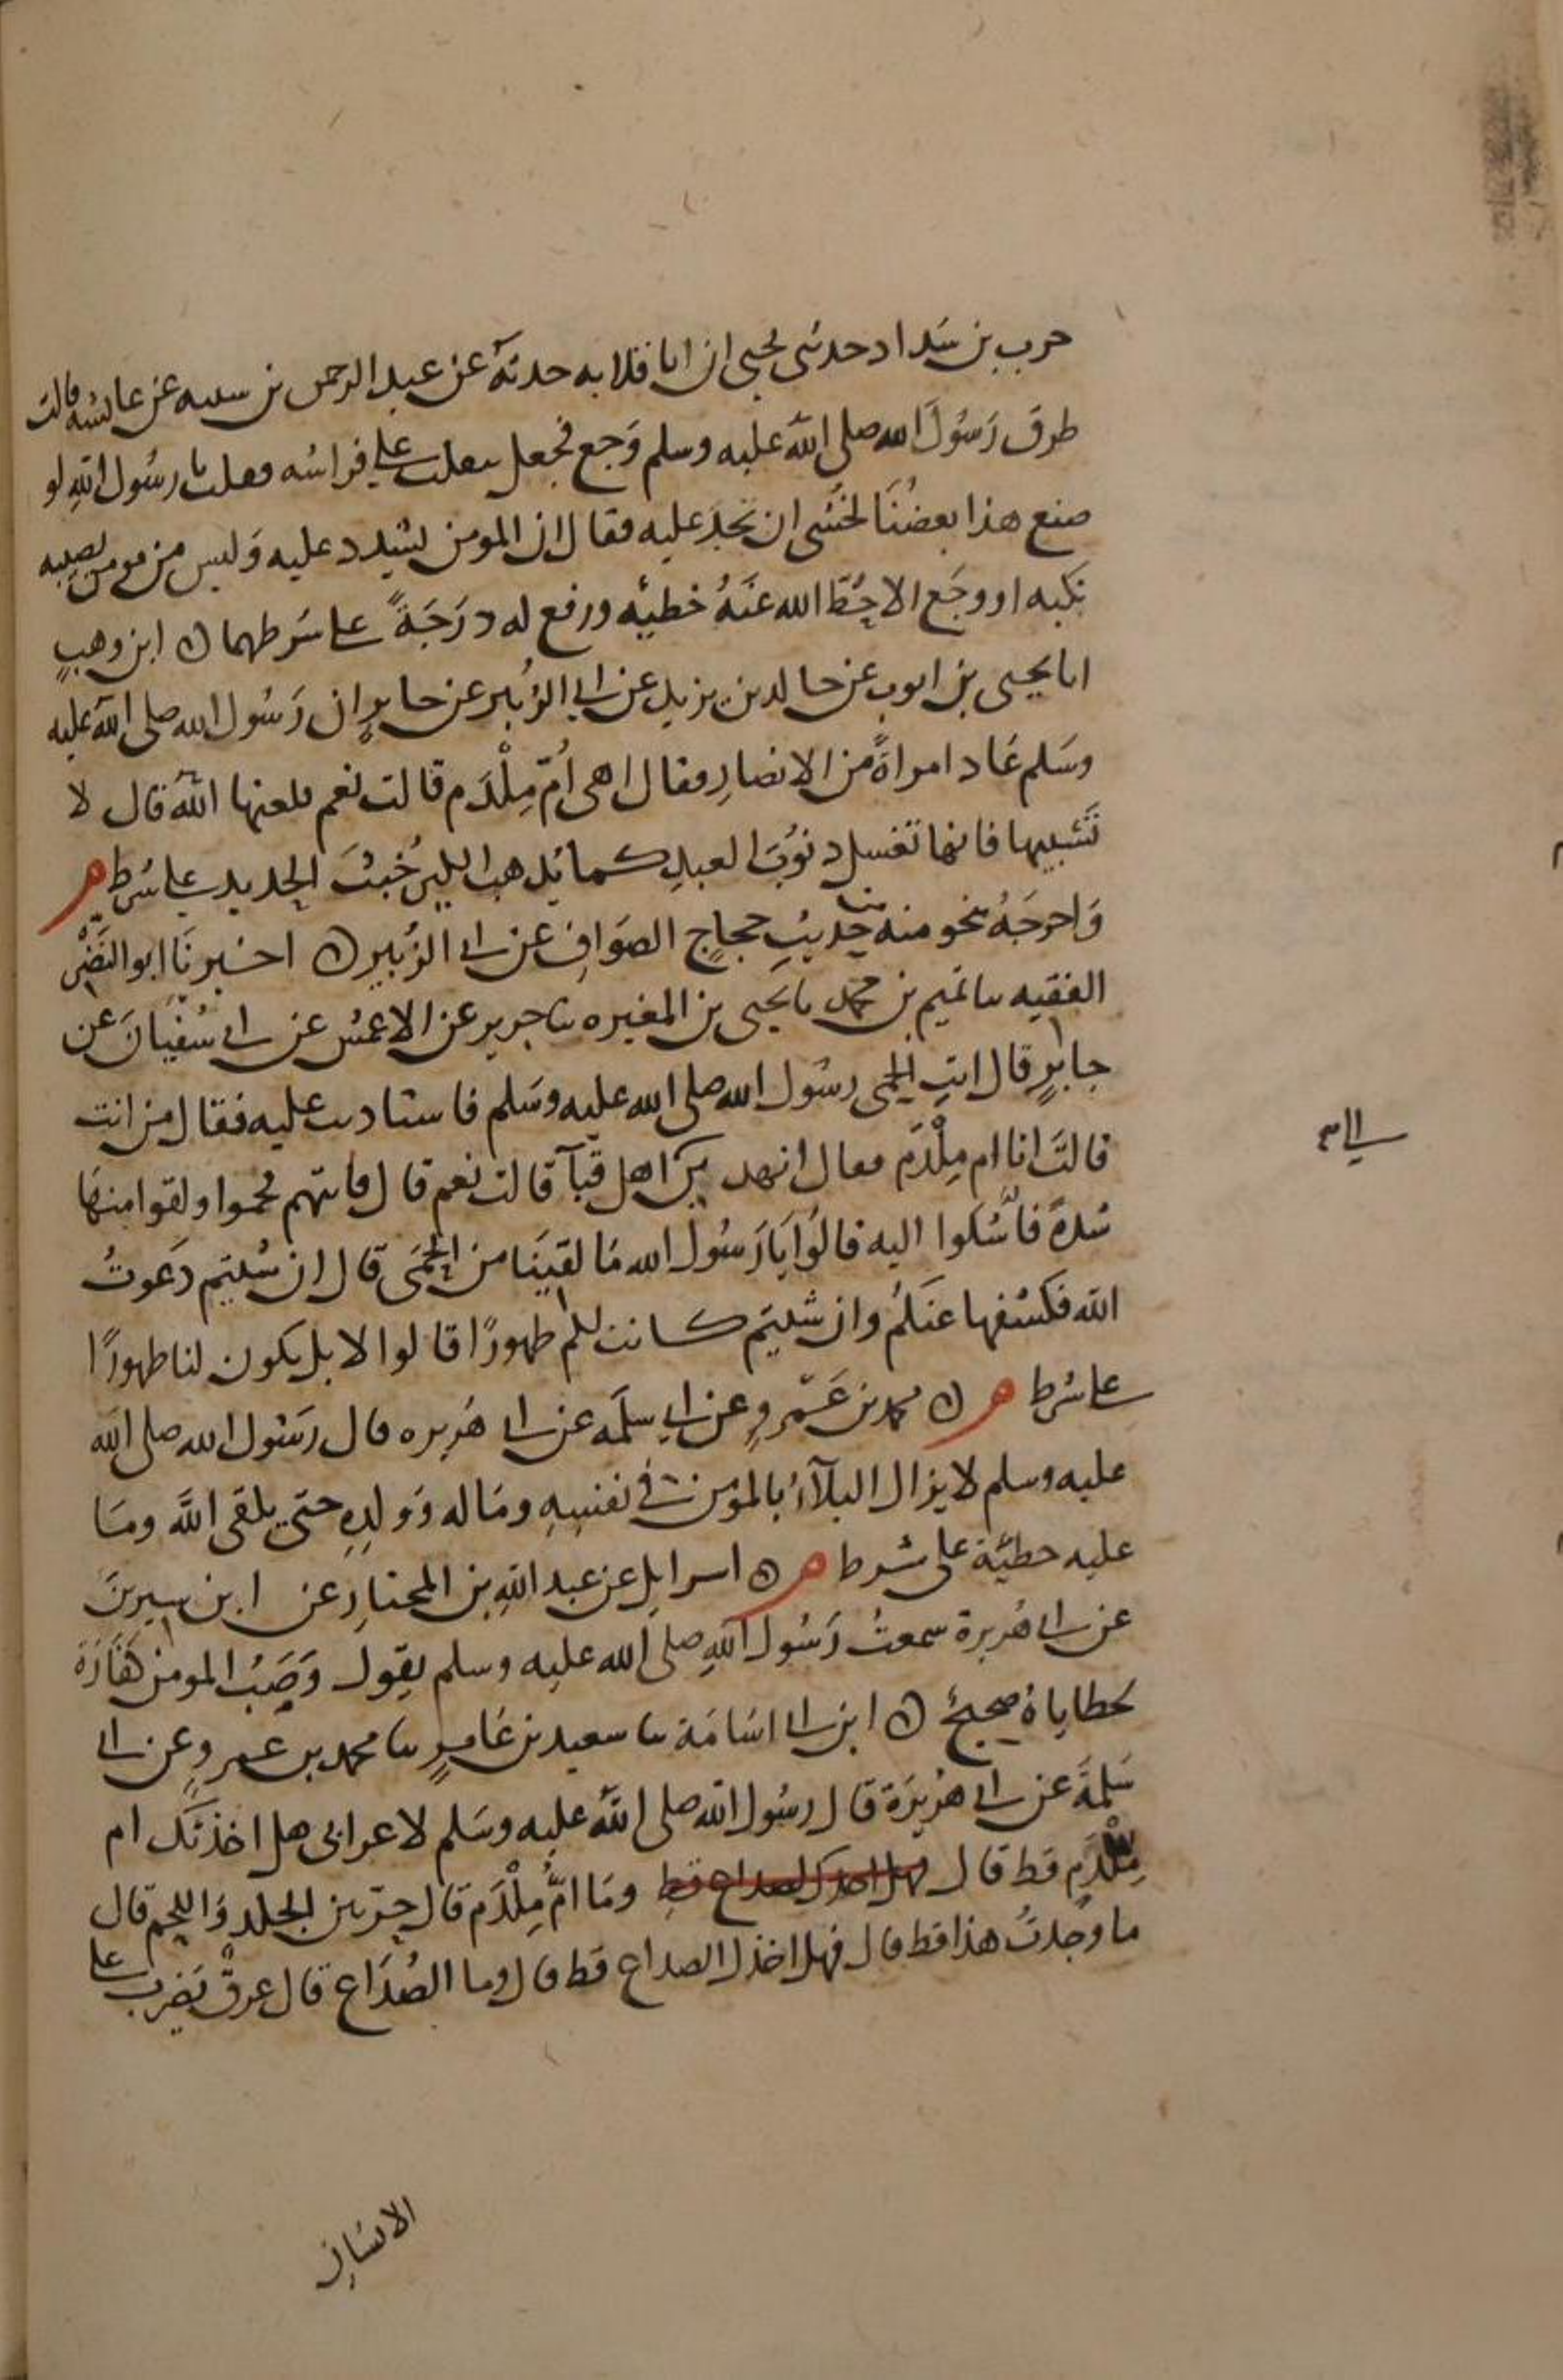 حرب بن شداد حدثني يحيى ان ابا قلابه حدثه عن عبد الرحمن بن سيبه عن عائشه قالت
طرق رَسُولَ الله صلى اللّه عليه وسلم وَجع فجعل يتقلب على فراشه فقلت يا رسُول اللهِ لو
صنع هذا بعضُنَا لخشى ان تجد عليه فقال ان المومن ليشدد عليه وَليس من مومن يصيبه
نكبه او وجَع الا حُطّ الله عَنهُ خطيئه ورفع له درَجَةً على شرطهما ن ابن وهبٍ
انا يحيى بن ايوب عن خالد بن يزيد عن ابي الزُبير عن جابرٍ ان رَسُول الله صلى اللّه عليه
وسَلم عَاد امراةً من الانصارِ فقال اهى اُمّ مِلْدَم قالت نعم فلعنها اللّهُ قال لا
تَسُبيها فانها تغسل ذنوُبَ العبدِ كما يُذهب الكير خُبثَ الحديد على شرط م
وَاخرجَهُ بنحو منه من حديثِ حجاجٍ الصَوافِ عن ابي الزُبير ن اخبرنَا ابو النَضْر
الفقيه ثنا تميم بن محمد نا يحيى بن المغيره ثنا جرير عن الاعمش عن ابي سُفيَانَ عن
جابرٍ قال اتتِ الحمى رسُول الله صلى الله عليه وسَلم فاستاذنت عليه فقال من انت
قالتَ انا ام مِلْدَم فقال انهدين الى اهل قبآ قالت نعم قال فاتتهم فحموا ولقوا منها
شدةً فاشتكوا اليه قالوُا يَا رَسُول الله مَا لقينَا من الحمَى قال ان شئتم دَعوتُ
اللّه فكشفها عنكم وان شئتم كانت لكم طهورًا قالوا لا بل يكون لنا طهورًا
على شرط م ن محمد بن عَمْروٍ عن ابي سلمَه عن ابي هُريره قال رَسُول الله صلى الله
عليه وسلم لا يزال البلآءُ بالمومن في نفسِهِ ومَاله وَولدِهِ حتى يلقى اللّهَ ومَا
عليه خطيَّة على شرط م ن اسرايل عن عبد اللهِ بن المختارِ عن ابن سيرينَ
عن ابي هُريرة سمعتُ رَسُول اللهِ صلى الله عليه وسلم يقول وَصَبُ المومن كفّارَة
لخطاياهُ صحيحٌ ن ابن ابي اسَامَة ثنا سعيد بن عَامرٍ ثنا محمد بن عمروٍ عن ابي
سَلمةَ عن ابي هُريرَة قال رسُول الله صلى اللّهُ عليه وسَلم لاعرابي هل اخذتك ام
مِلْدَمٍ قط قال فهل اخذك الصداع قط ومَا امُّ مِلْدَم قال حرّ بين الجلد وَاللحم قال
ما وجَدتُ هذا قط قال فهل اخذك الصداع قط قال وما الصُدَاع قال عرقٌ يَضرب على
الانسَانِ